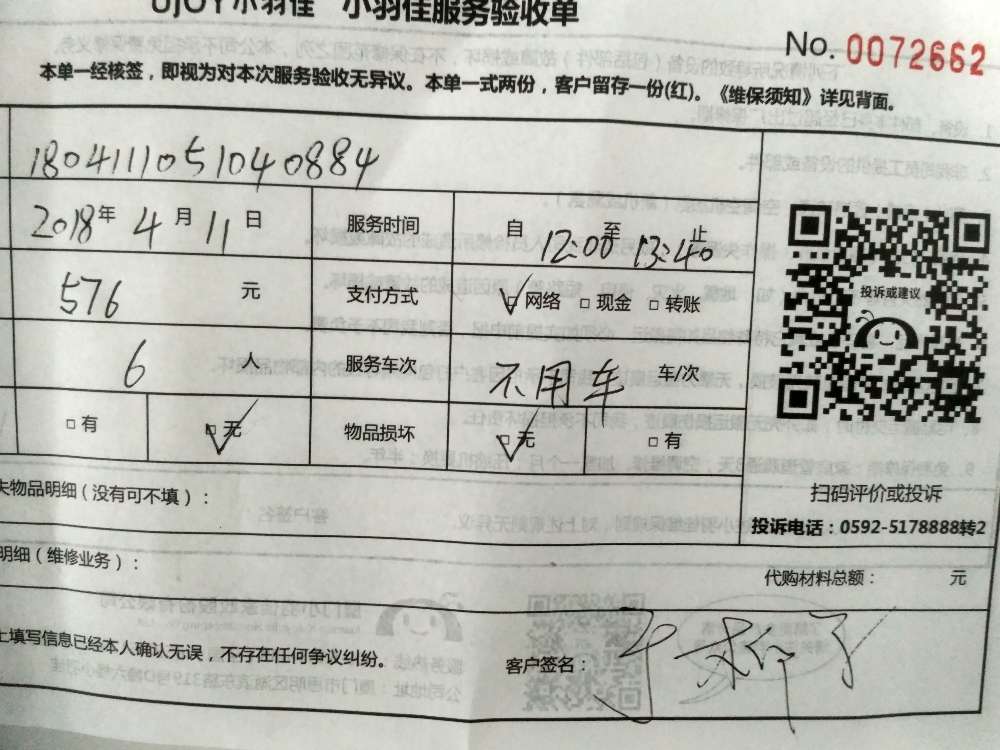 UJOY小羽佳 小羽佳服务验收单
No. 0072662
本单一经核签，即视为对本次服务验收无异议。本单一式两份，客户留存一份(红)。《维保须知》详见背面。
1804111051040884
2018年 4 月 11 日 服务时间 自 12:00 至 13:40 止
576 元 支付方式 ☑网络 □现金 □转账
6 人 服务车次 不用车 车/次
□有 ☑无 物品损坏 ☑无 □有
投诉或建议
扫码评价或投诉
投诉电话：0592-5178888转2
失物品明细（没有可不填）：
明细（维修业务）：
代购材料总额： 元
上填写信息已经本人确认无误，不存在任何争议纠纷。
客户签名：